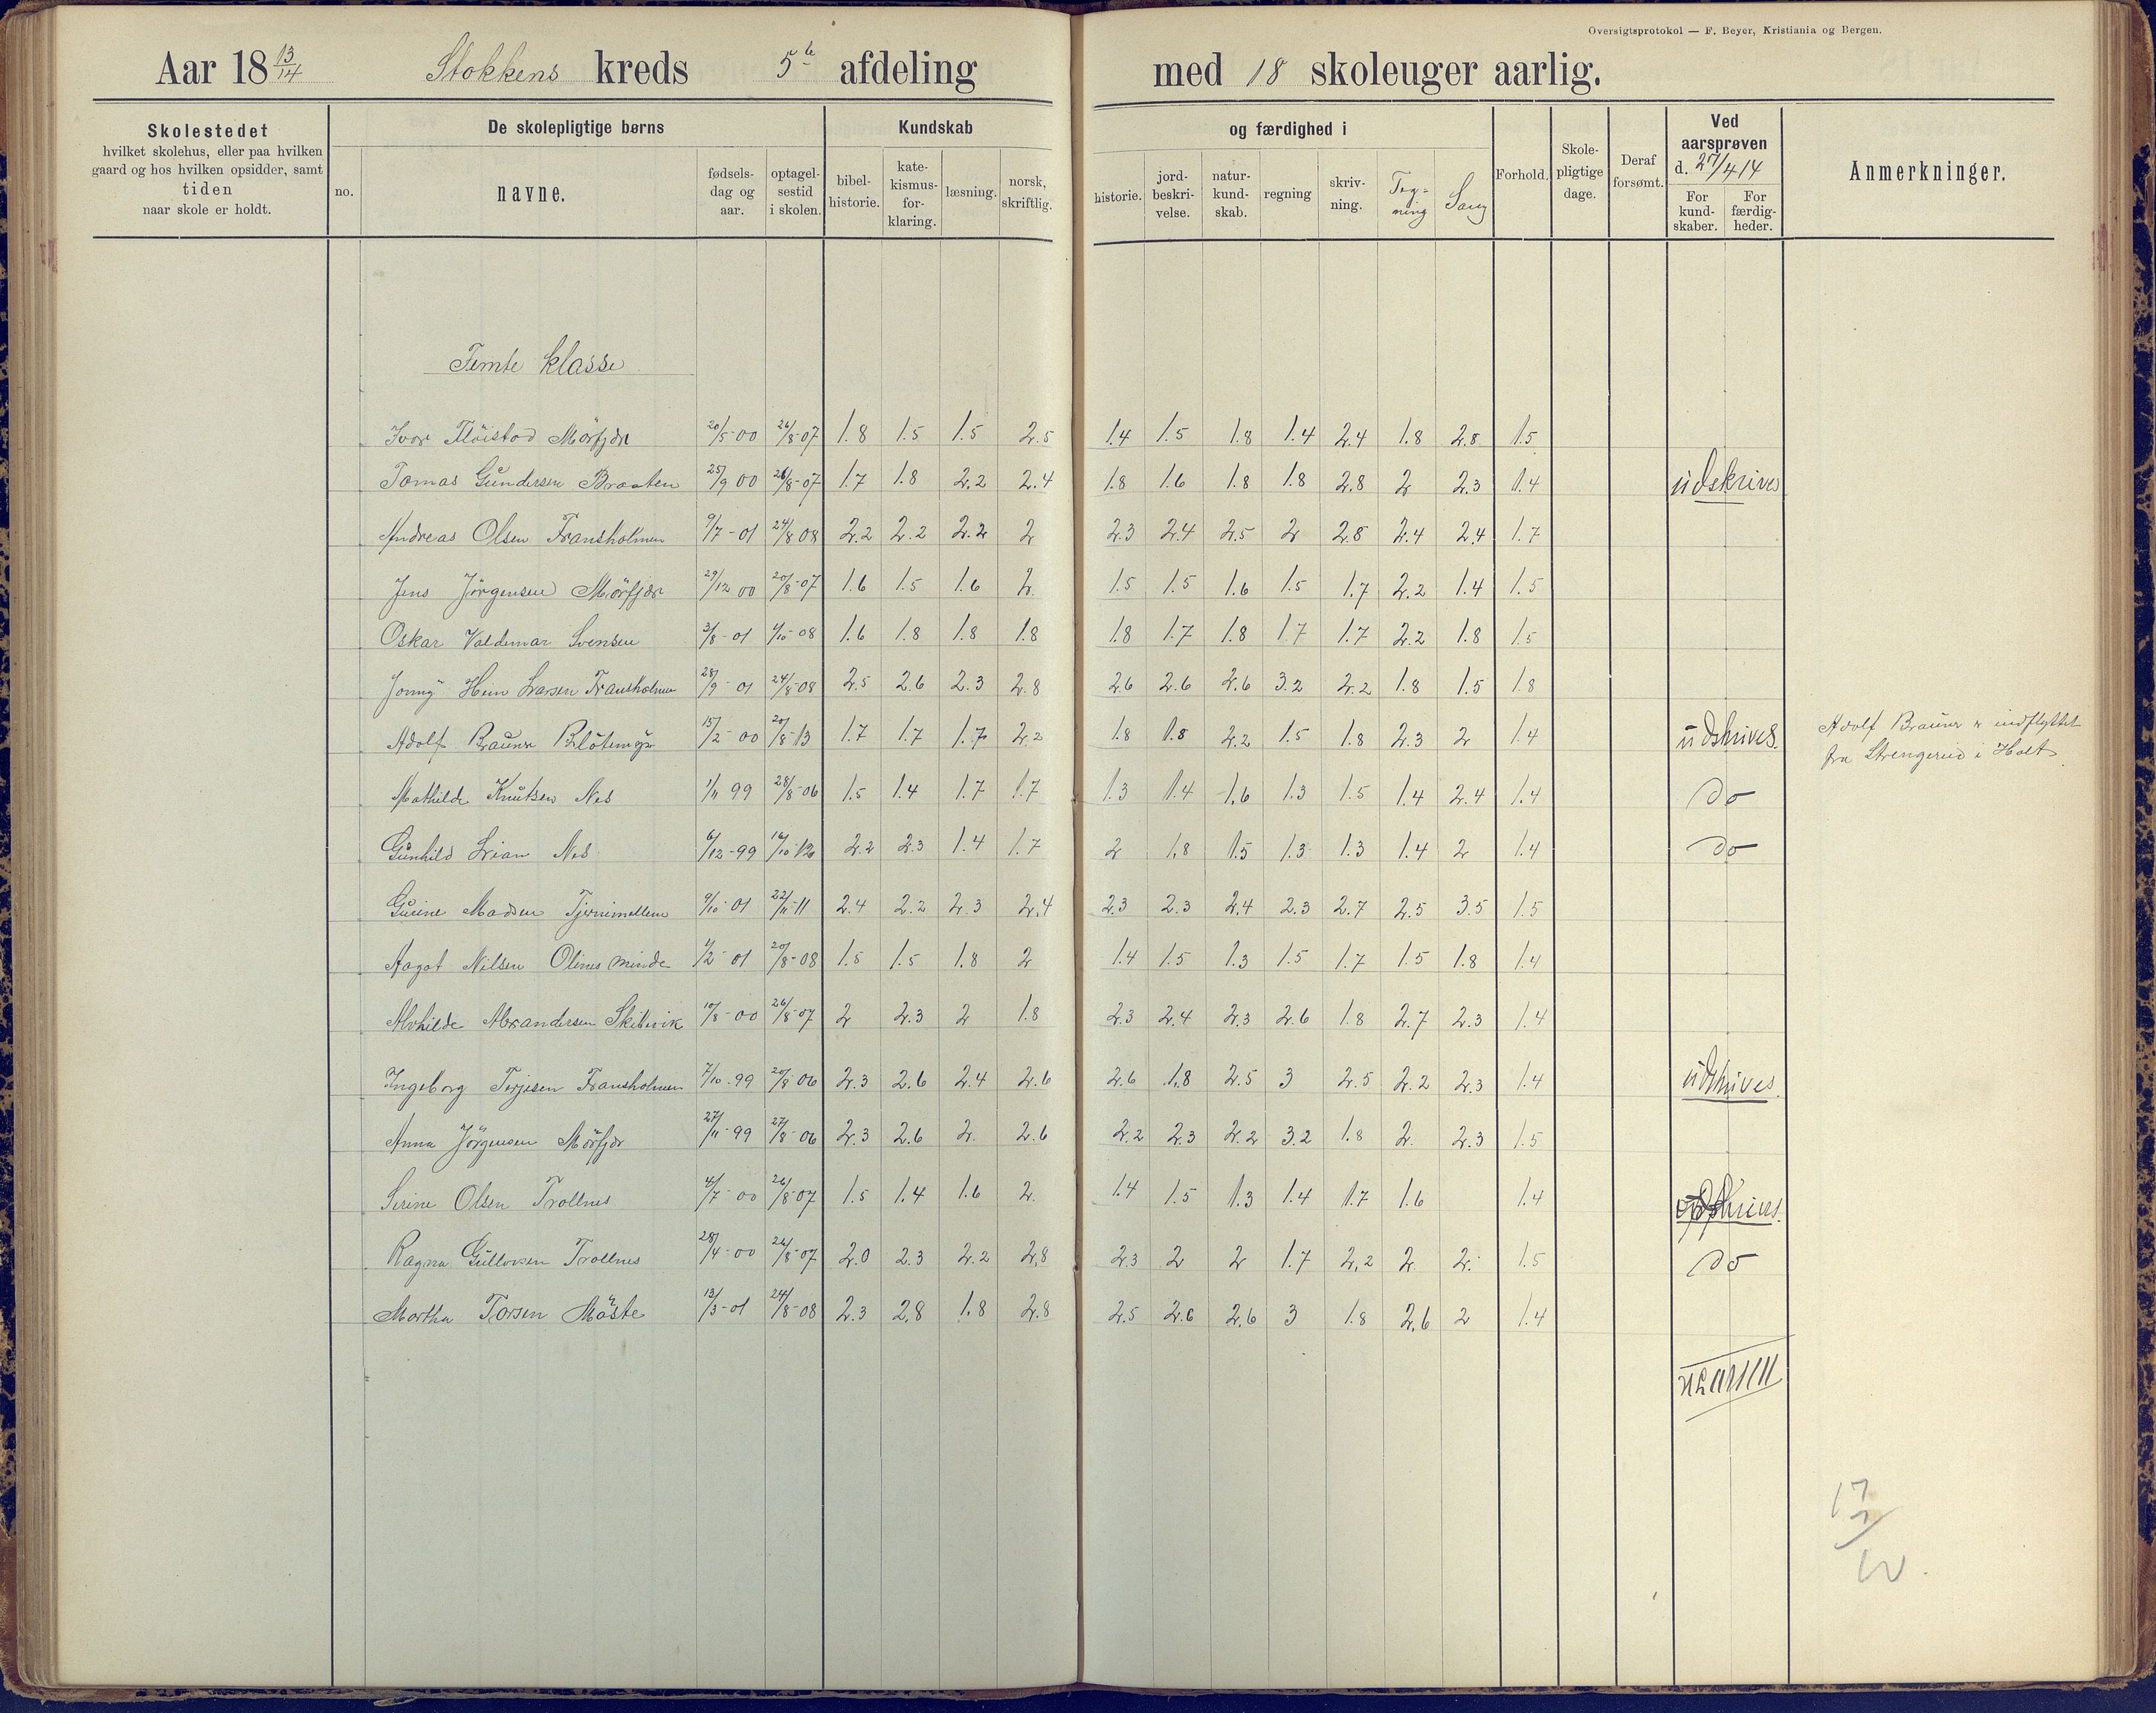 Oversigtsprotokol — F. Beyer, Kristiania og Bergen.
Aar 18 13/14 Stokkens kreds 5te afdeling med 18 skoleuger aarlig.
Skolestedet
hvilket skolehus, eller paa hvilken
gaard og hos hvilken opsidder, samt
tiden
naar skole er holdt.
De skolepligtige børns
no.
navne.
fødsels-
dag og
aar.
optagel-
sestid
i skolen.
Kundskab
bibel-
historie.
kate-
kismus-
for-
klaring.
læsning.
norsk,
skriftlig.
og færdighed i
historie.
jord-
beskri-
velse.
natur-
kund-
skab.
regning
skriv-
ning.
Teg-
ning
Sang
Forhold.
Skole-
pligtige
dage.
Deraf
forsømt.
Ved
aarsprøven
d. 27/4 14
For
kund-
skaber.
For
færdig-
heder.
Anmerkninger.
Femte klasse
Ivar Fløistad Mörfjær 20/5-00 26/8-07 1.8 1.5 1.5 2.5 1.4 1.5 1.8 1.4 2.4 1.8 2.8 1.5
Tomas Gundersen Braaten 25/9 00 26/8-07 1.7 1.8 2.2 2.4 1.8 1.6 1.8 1.8 2.8 2 2.3 1.4 udskrives
Andreas Olsen Fransholmen 9/7-01 24/8 08 2.2 2.2 2.2 2 2.3 2.4 2.5 2 2.8 2.4 2.4 1.7
Jens Jörgensen Mörfjær 29/12 00 20/8-07 1.6 1.5 1.6 2. 1.5 1.5 1.6 1.5 1.7 2.2 1.4 1.5
Oskar Valdemar Svensen 3/8-01 1/10-08 1.6 1.8 1.8 1.8 1.8 1.7 1.8 1.7 1.7 2.2 1.8 1.5
Jonny Hein Larsen Fransholmen 28/9-01 24/8-08 2.5 2.6 2.3 2.8 2.6 2.6 2.6 3.2 2.2 1.8 1.5 1.8
Adolf Brauner 15/2-00 20/8-13 1.7 1.7 1.7 2.2 1.8 1.8 2.2 1.5 1.8 2.3 2 1.4 udskrives. Adolf Brauner er indflyttet
fra Strengereid i Holt.
Mathilde Knutsen Nes 1/11 99 28/8-06 1.5 1.4 1.7 1.7 1.3 1.4 1.6 1.3 1.5 1.4 2.4 1.4 do
Gunhild Lian Nes 6/12-99 16/10-12 2.2 2.3 1.4 1.7 2 1.8 1.5 1.3 1.3 1.4 2 1.4 do
Gurine Madsen 9/10-01 22/11-11 2.4 2.2 2.3 2.4 2.3 2.3 2.4 2.3 2.7 2.5 3.5 1.5
Aagot Nilsen Olines minde 1/2-01 20/8-08 1.5 1.5 1.8 2 1.4 1.5 1.3 1.5 1.7 1.5 1.8 1.4
Alvhilde Alexandersen Skibvik 10/8-00 26/8-07 2 2.3 2 1.8 2.3 2.4 2.3 2.6 1.8 2.7 2.3 1.4
Ingeborg Terjesen Fransholmen 7/10-99 20/8-06 2.3 2.6 2.4 2.6 2.6 1.8 2.5 3 2.5 2.2 2.3 1.4 udskrives.
Anna Jörgensen Mörfjær 27/11-99 27/8-06 2.3 2.6 2. 2.6 2.2 2.3 2.2 3.2 1.8 2. 2.3 1.5
Serine Olsen Trollnes 4/7-00 26/8-07 1.5 1.4 1.6 2. 1.4 1.5 1.3 1.4 1.7 1.6 1.4 udskrives.
Ragna Gullovsen Trollnes 28/4-00 26/8-07 2.0 2.3 2.2 2.8 2.3 2 2 1.7 2.2 2. 2. 1.5 do
Martha Torsen Möste 13/3-01 24/8-08 2.3 2.8 1.8 2.8 2.5 2.6 2.6 3 1.8 2.6 2 1.4
17